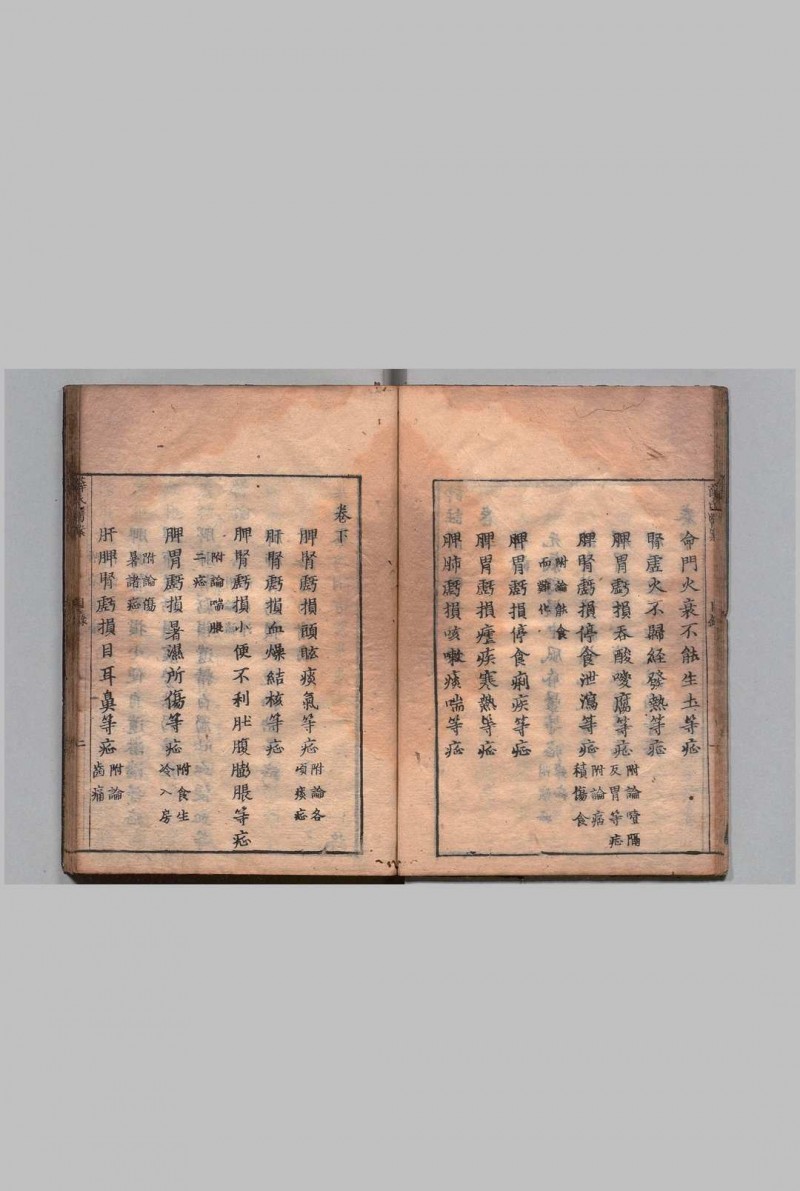 命門火衰不能生土等症
腎虛火不歸経發熱等症
脾胃虧損吞酸噯腐等症附論噎隔
反胃等症
脾腎虧損停食泄瀉等症附論痞
積傷食
附論能食
而難化
脾胃虧損停食痢疾等症
脾胃虧損瘧疾寒熱等症
脾肺虧損咳嗽痰喘等症
卷下
脾腎虧損頭眩痰氣等症附論各
項痰症
肝腎虧損血燥結核等症
脾腎虧損小便不利肚腹膨脹等症
附論喘脹
二症
脾胃虧損暑濕所傷等症附食生
冷入房
附論傷
暑諸症
肝脾腎虧損目耳鼻等症附論
齒痛
二